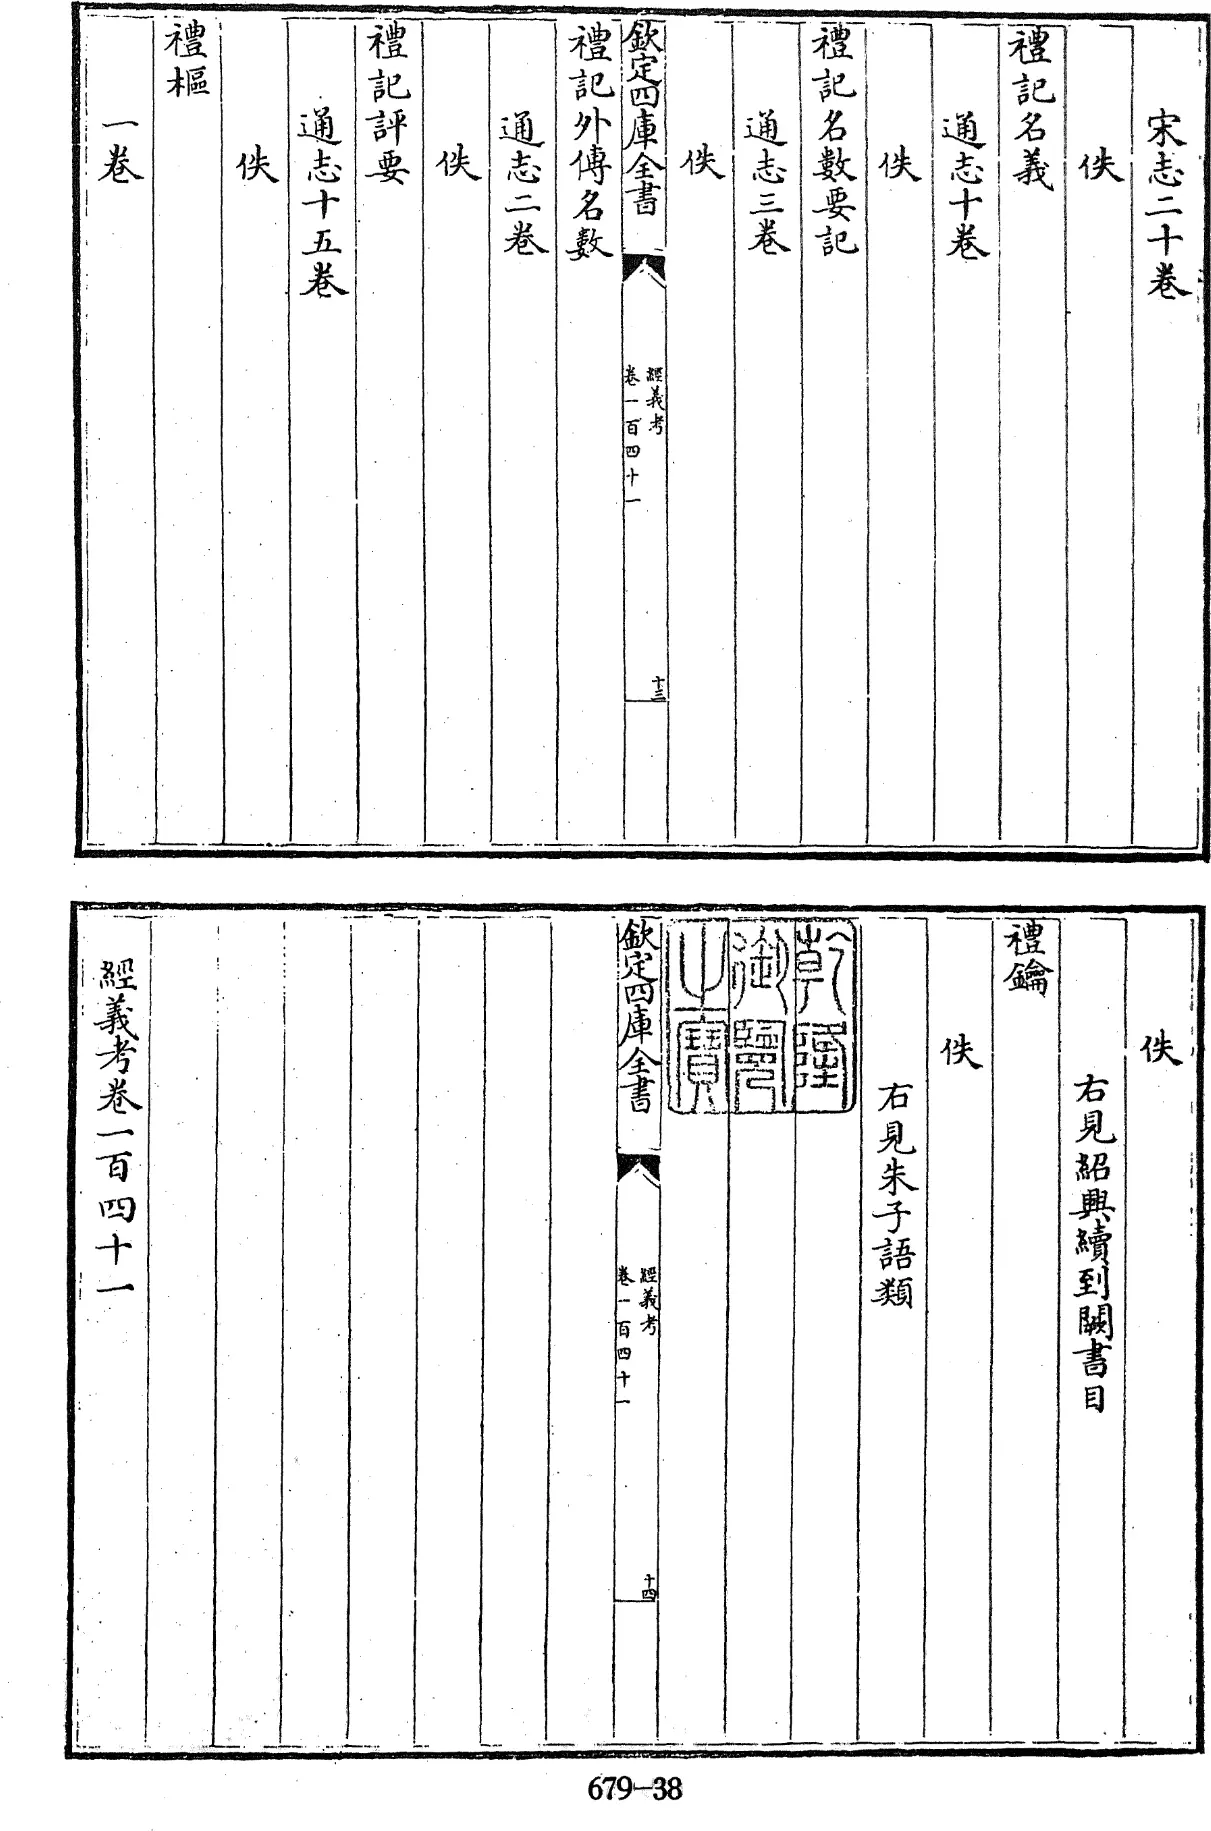 宋志二十卷
佚
禮記名義
通志十卷
佚
禮記名數要記
通志三卷
佚
欽定四庫全書
經義考
卷一百四十一
十三
禮記外傳名數
通志二卷
佚
禮記評要
通志十五卷
佚
禮樞
一卷
佚
右見紹興續到闕書目
禮鑰
佚
右見朱子語類
乾隆
御覽
之寶
欽定四庫全書
經義考
卷一百四十一
十四
經義考卷一百四十一
679-38